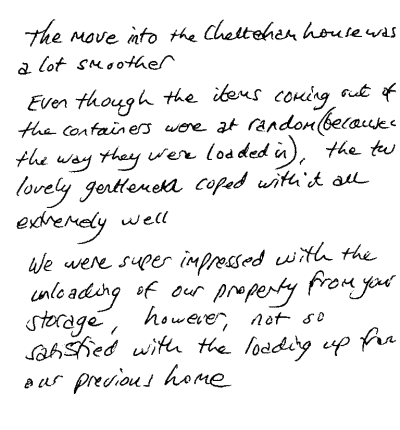 The move into the Cheltenham house was
a lot smoother
Even though the items coming out of
the containers were at random (because
the way they were loaded in), the tw
lovely gentlemen coped with it all
extremely well
We were super impressed with the
unloading of our property from your
storage, however, not so
satisfied with the loading up from
our previous home